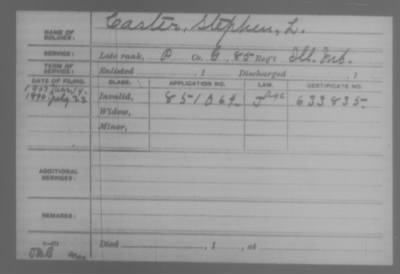 NAME OF SOLDIER: Caster, Stephen, L.
SERVICE: Late rank, P Co. G, 85 Reg't Ill. Inf.
TERM OF SERVICE: Enlisted , 1 Discharged , 1
DATE OF FILING. CLASS. APPLICATION NO. LAW. CERTIFICATE NO.
1890 July 23 Invalid, 851069 633835
Widow,
Minor,
ADDITIONAL SERVICES:
REMARKS:
Died , 1 , at